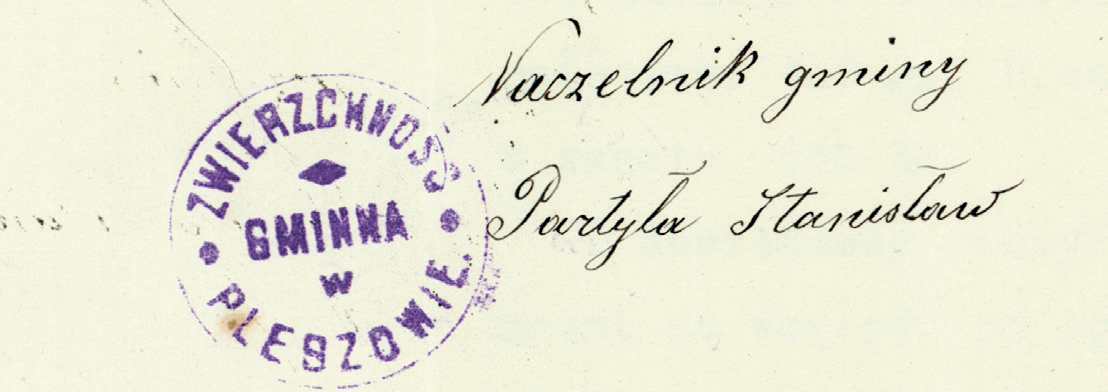 Naczelnik gminy
Partyła Stanisław
ZWIERZCHNOŚĆ
GMINNA
w
PLESZOWIE.